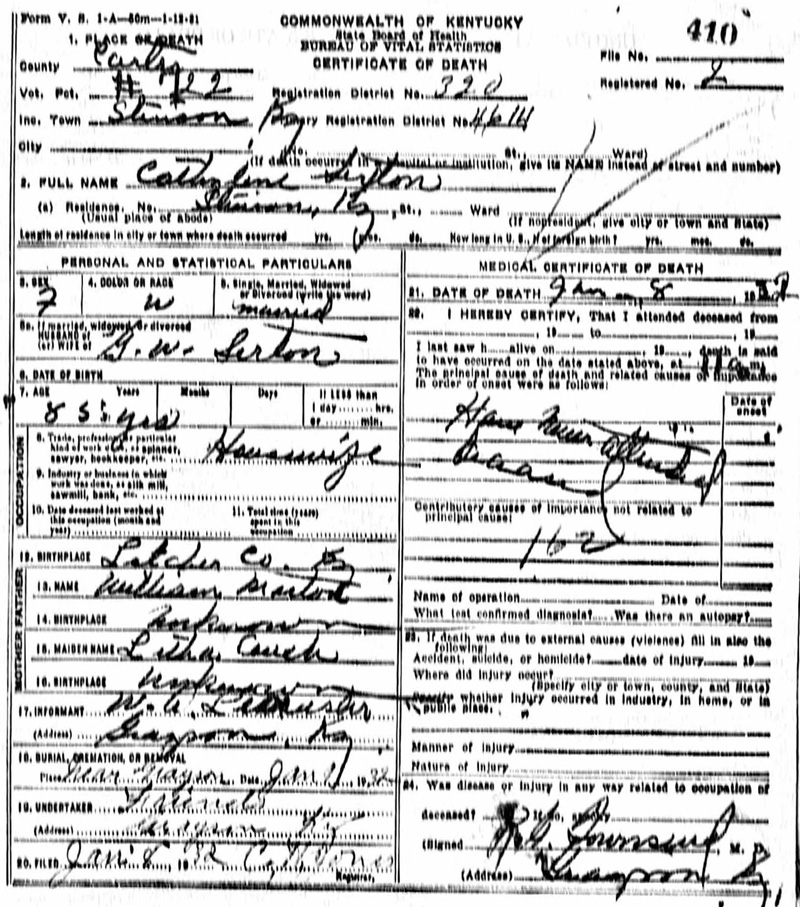 Form V. S. 1-A—50m—1-12-31
COMMONWEALTH OF KENTUCKY
State Board of Health
BUREAU OF VITAL STATISTICS
CERTIFICATE OF DEATH
410
File No.
Registered No. 2
1. PLACE OF DEATH
County Carter
Vot. Pct. # 122 Registration District No. 320
Inc. Town Stinson Ky Primary Registration District No. 4614
City No. St. Ward)
(If death occurred in hospital or institution, give its NAME instead of street and number)
2. FULL NAME Cathryline Sexton
(a) Residence. No. Stinson, Ky St., Ward
(Usual place of abode) (If nonresident, give city or town and State)
Length of residence in city or town where death occurred yrs. mos. ds. How long in U. S., if of foreign birth? yrs. mos. ds.
PERSONAL AND STATISTICAL PARTICULARS
3. SEX F
4. COLOR OR RACE W
5. Single, Married, Widowed or Divorced (write the word) married
5a. If married, widowed or divorced
HUSBAND of
(or) WIFE of G. W. Sexton
6. DATE OF BIRTH
7. AGE Years Months Days If LESS than
85 yrs 1 day hrs.
or min.
OCCUPATION
8. Trade, profession or particular
kind of work done, as spinner,
sawyer, bookkeeper, etc. Housewife
9. Industry or business in which
work was done, as silk mill,
sawmill, bank, etc.
10. Date deceased last worked at
this occupation (month and
year)
11. Total time (years)
spent in this
occupation
12. BIRTHPLACE Letcher Co. Ky
FATHER
13. NAME William
14. BIRTHPLACE unknown
MOTHER
15. MAIDEN NAME Couch
16. BIRTHPLACE unknown
17. INFORMANT W. A.
(Address) Grayson, Ky
18. BURIAL, CREMATION, OR REMOVAL
Place near Grayson Date Jan 1932
19. UNDERTAKER Friends
(Address) Grayson Ky
20. FILED Jan 8 19 32
Registrar
MEDICAL CERTIFICATE OF DEATH
21. DATE OF DEATH Jan 8, 1932
22. I HEREBY CERTIFY, That I attended deceased from
, 19 to , 19
I last saw h alive on , 19 , death is said
to have occurred on the date stated above, at 11 a m.
The principal cause of death and related causes of importance
in order of onset were as follows:
Date of
onset
Have never attended
Contributory causes of importance not related to
principal cause:
162
Name of operation Date of
What test confirmed diagnosis? Was there an autopsy?
23. If death was due to external causes (violence) fill in also the
following:
Accident, suicide, or homicide? date of injury 19
Where did injury occur?
(Specify city or town, county, and State)
Specify whether injury occurred in industry, in home, or in
public place.
Manner of injury
Nature of injury
24. Was disease or injury in any way related to occupation of
deceased? If so, specify
(Signed Townsend, M. D.
(Address) Grayson Ky